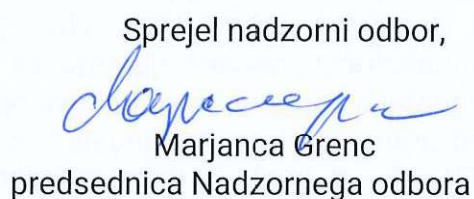 Sprejel nadzorni odbor,
Marjanca Grenc
predsednica Nadzornega odbora